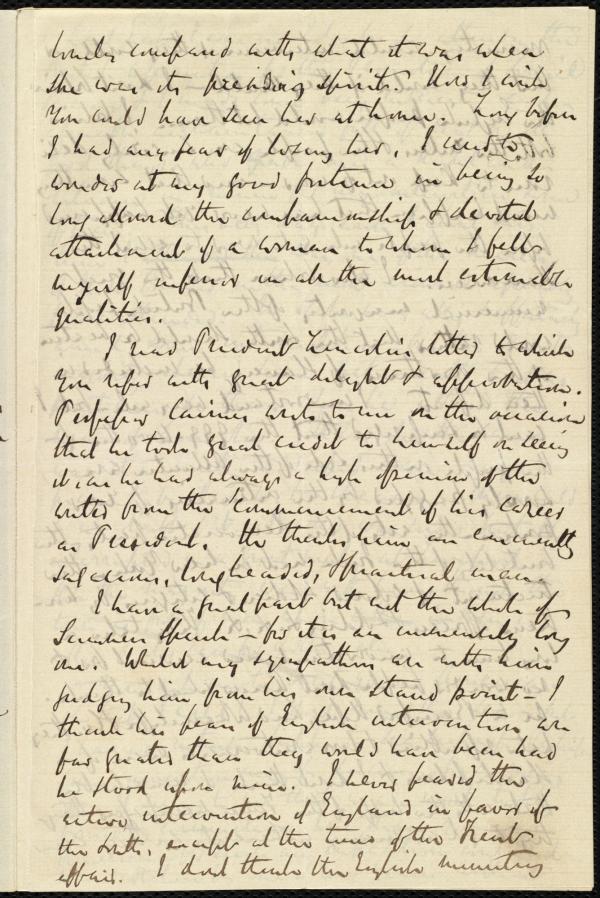 lonely compared with what it was when
she was its presiding spirit. How I wish
you could have seen her at home. Long before
I had any fear of losing her, I used to
wonder at my good fortune in being so
long allowed the companionship & devoted
attachment of a woman to whom I felt
myself inferior in all the most estimable
qualities.
I read President Lincoln's letter to which
you refer with great delight & approbation.
Professor Cairnes wrote to me on the occasion
that he took great credit to himself on seeing
it as he had always a high opinion of the
writer from the commencement of his career
as President. He thinks him an eminently
sagacious, longheaded, & practical man.
I have a great part but not the whole of
Sumners Speech - for it is an immensely long
one. Whilst my sympathies are with him
judging him from his own stand point - I
think his fears of English intervention are
far greater than they would have been had
he stood upon mine. I never feared the
active intervention of England in favor of
the South, except at the time of the Trent
affair. I dont think the English ministry